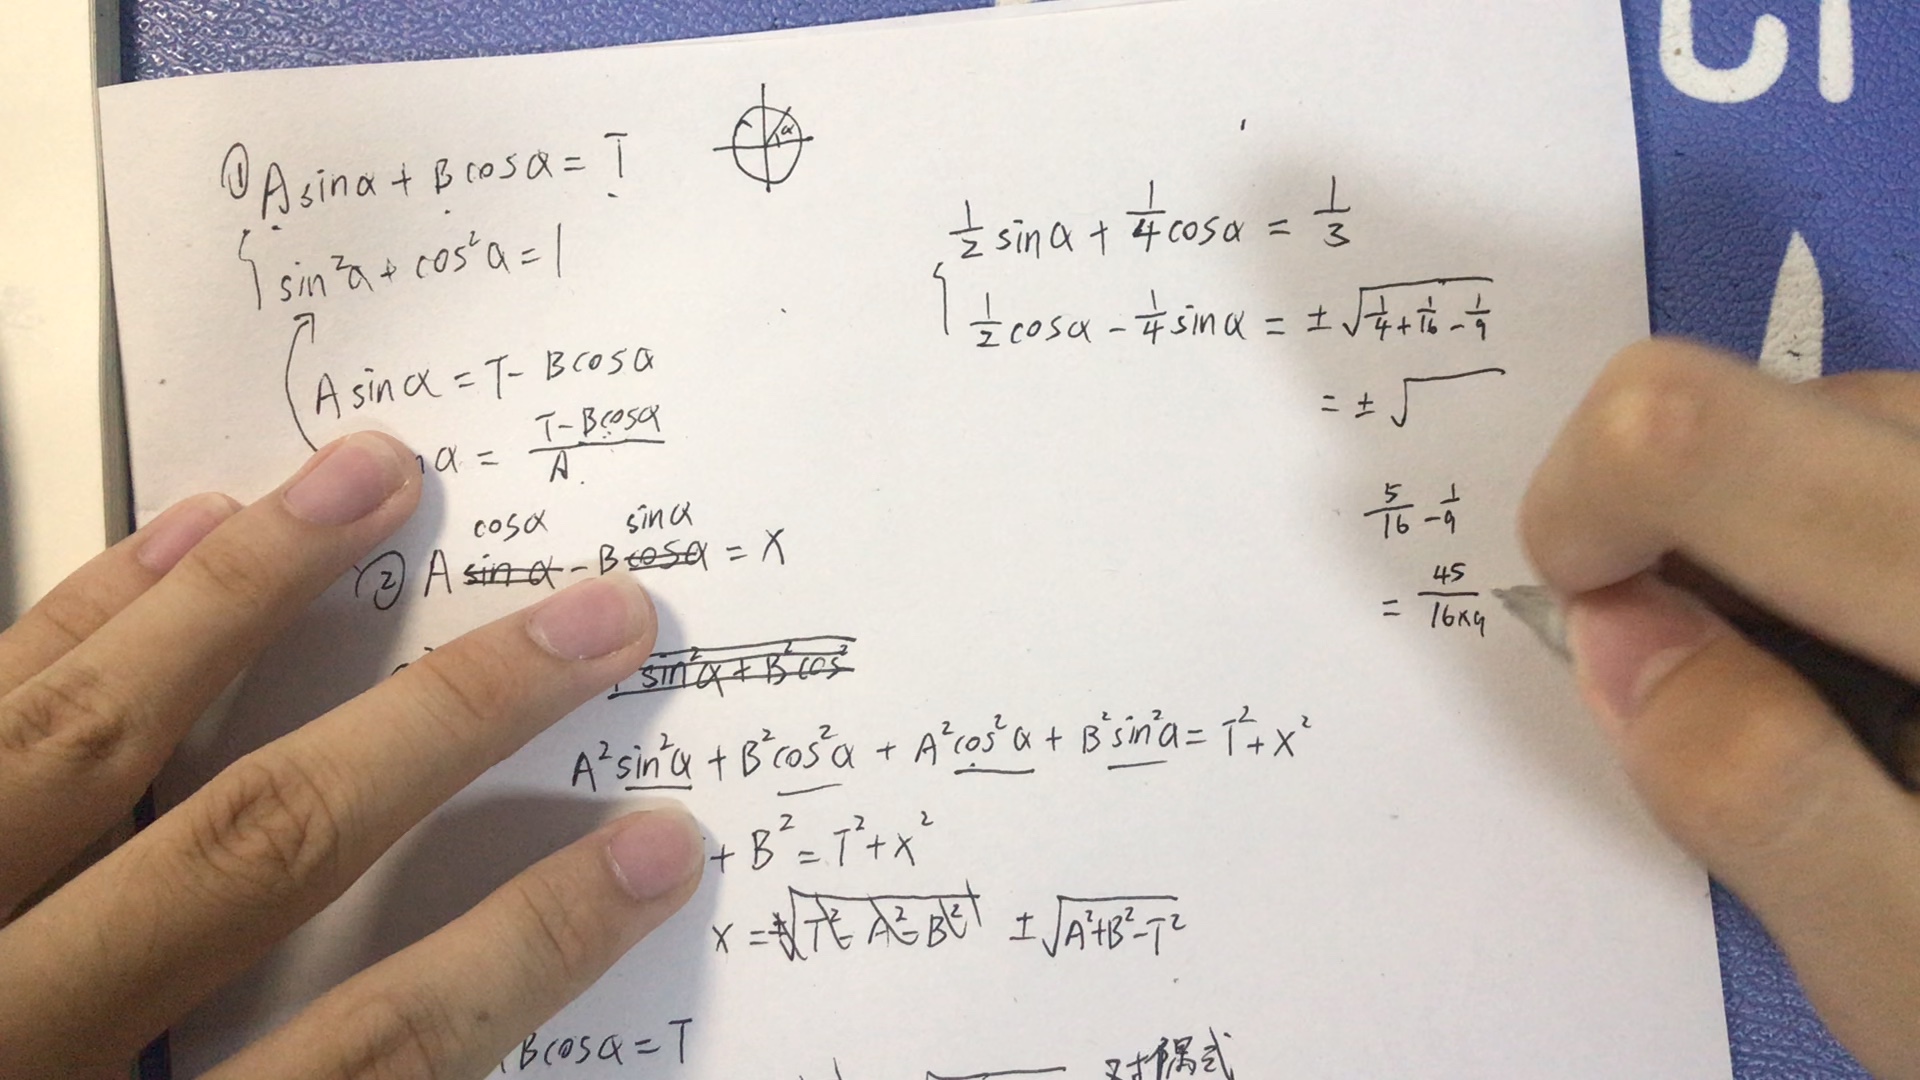 ① A sinα + B cosα = T
sin²α + cos²α = 1
A sinα = T - B cosα
α = \frac{T - B cosα}{A}
cosα sinα
② A sinα - B cosα = X
sin²α + B²cos²
A²sin²α + B²cos²α + A²cos²α + B²sin²α = T² + X²
+ B² = T² + X²
X = ±√(T² - A² - B²) ±√(A² + B² - T²)
B cosα = T
对偶式
α
\frac{1}{2} sinα + \frac{1}{4} cosα = \frac{1}{3}
\frac{1}{2} cosα - \frac{1}{4} sinα = ±√(\frac{1}{4} + \frac{1}{16} - \frac{1}{9})
= ±√
\frac{5}{16} - \frac{1}{9}
= \frac{45}{16×9}